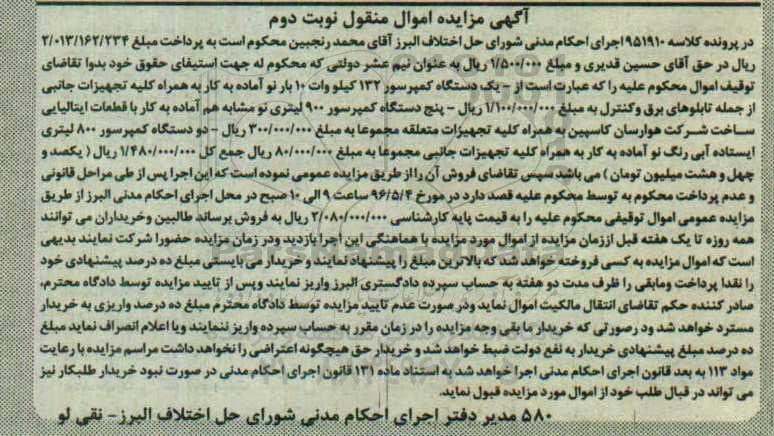 آگهی مزایده اموال منقول نوبت دوم
در پرونده کلاسه ۹۵۱۹۱۰ اجرای احکام مدنی شورای حل اختلاف البرز آقای محمد رنجبین محکوم است به پرداخت مبلغ ۲/۰۱۳/۱۶۲/۲۳۴
ریال در حق آقای حسین قدیری و مبلغ ۱/۵۰۰/۰۰۰ ریال به عنوان نیم عشر دولتی که محکوم له جهت استیفای حقوق خود بدوا تقاضای
توقیف اموال محکوم علیه را که عبارت است از - یک دستگاه کمپرسور ۱۳۲ کیلو وات ۱۰ بار نو آماده به کار به همراه کلیه تجهیزات جانبی
از جمله تابلوهای برق وکنترل به مبلغ ۱/۱۰۰/۰۰۰/۰۰۰ ریال - پنج دستگاه کمپرسور ۹۰۰ لیتری نو مشابه هم آماده به کار با قطعات ایتالیایی
ساخت شرکت هوارسان کاسپین به همراه کلیه تجهیزات متعلقه مجموعا به مبلغ ۳۰۰/۰۰۰/۰۰۰ ریال - دو دستگاه کمپرسور ۸۰۰ لیتری
ایستاده آبی رنگ نو آماده به کار به همراه کلیه تجهیزات جانبی مجموعا به مبلغ ۸۰/۰۰۰/۰۰۰ ریال جمع کل ۱/۴۸۰/۰۰۰/۰۰۰ ریال ( یکصد و
چهل و هشت میلیون تومان ) می باشد سپس تقاضای فروش آن را از طریق مزایده عمومی نموده است که این اجرا پس از طی مراحل قانونی
و عدم پرداخت محکوم به توسط محکوم علیه قصد دارد در مورخ ۹۶/۵/۴ ساعت ۹ الی ۱۰ صبح در محل اجرای احکام مدنی البرز از طریق
مزایده عمومی اموال توقیفی محکوم علیه را به قیمت پایه کارشناسی ۲/۰۸۰/۰۰۰/۰۰۰ ریال به فروش برساند. طالبین وخریداران می توانند
همه روزه تا یک هفته قبل اززمان مزایده از اموال مورد مزایده با هماهنگی این اجرا بازدید ودر زمان مزایده حضورا شرکت نمایند بدیهی
است که اموال مزایده به کسی فروخته خواهد شد که بالاترین مبلغ را پیشنهاد نمایند و خریدار می بایستی مبلغ ده درصد پیشنهادی خود
را نقدا پرداخت ومابقی را ظرف مدت دو هفته به حساب سپرده دادگستری البرز واریز نمایند وپس از تایید مزایده توسط دادگاه محترم،
صادر کننده حکم تقاضای انتقال مالکیت اموال نماید ودر صورت عدم تایید مزایده توسط دادگاه محترم مبلغ ده درصد واریزی به خریدار
مسترد خواهد شد ود رصورتی که خریدار ما بقی وجه مزایده را در زمان مقرر به حساب سپرده واریز ننمایند ویا اعلام انصراف نماید مبلغ
ده درصد مبلغ پیشنهادی خریدار به نفع دولت ضبط خواهد شد و خریدار حق هیچگونه اعتراضی را نخواهد داشت مراسم مزایده با رعایت
مواد ۱۱۳ به بعد قانون اجرای احکام مدنی اجرا خواهد شد به استناد ماده ۱۳۱ قانون اجرای احکام مدنی در صورت نبود خریدار طلبکار نیز
می تواند در قبال طلب خود از اموال مورد مزایده قبول نماید.
۵۸۰ مدیر دفتر اجرای احکام مدنی شورای حل اختلاف البرز - نقی لو